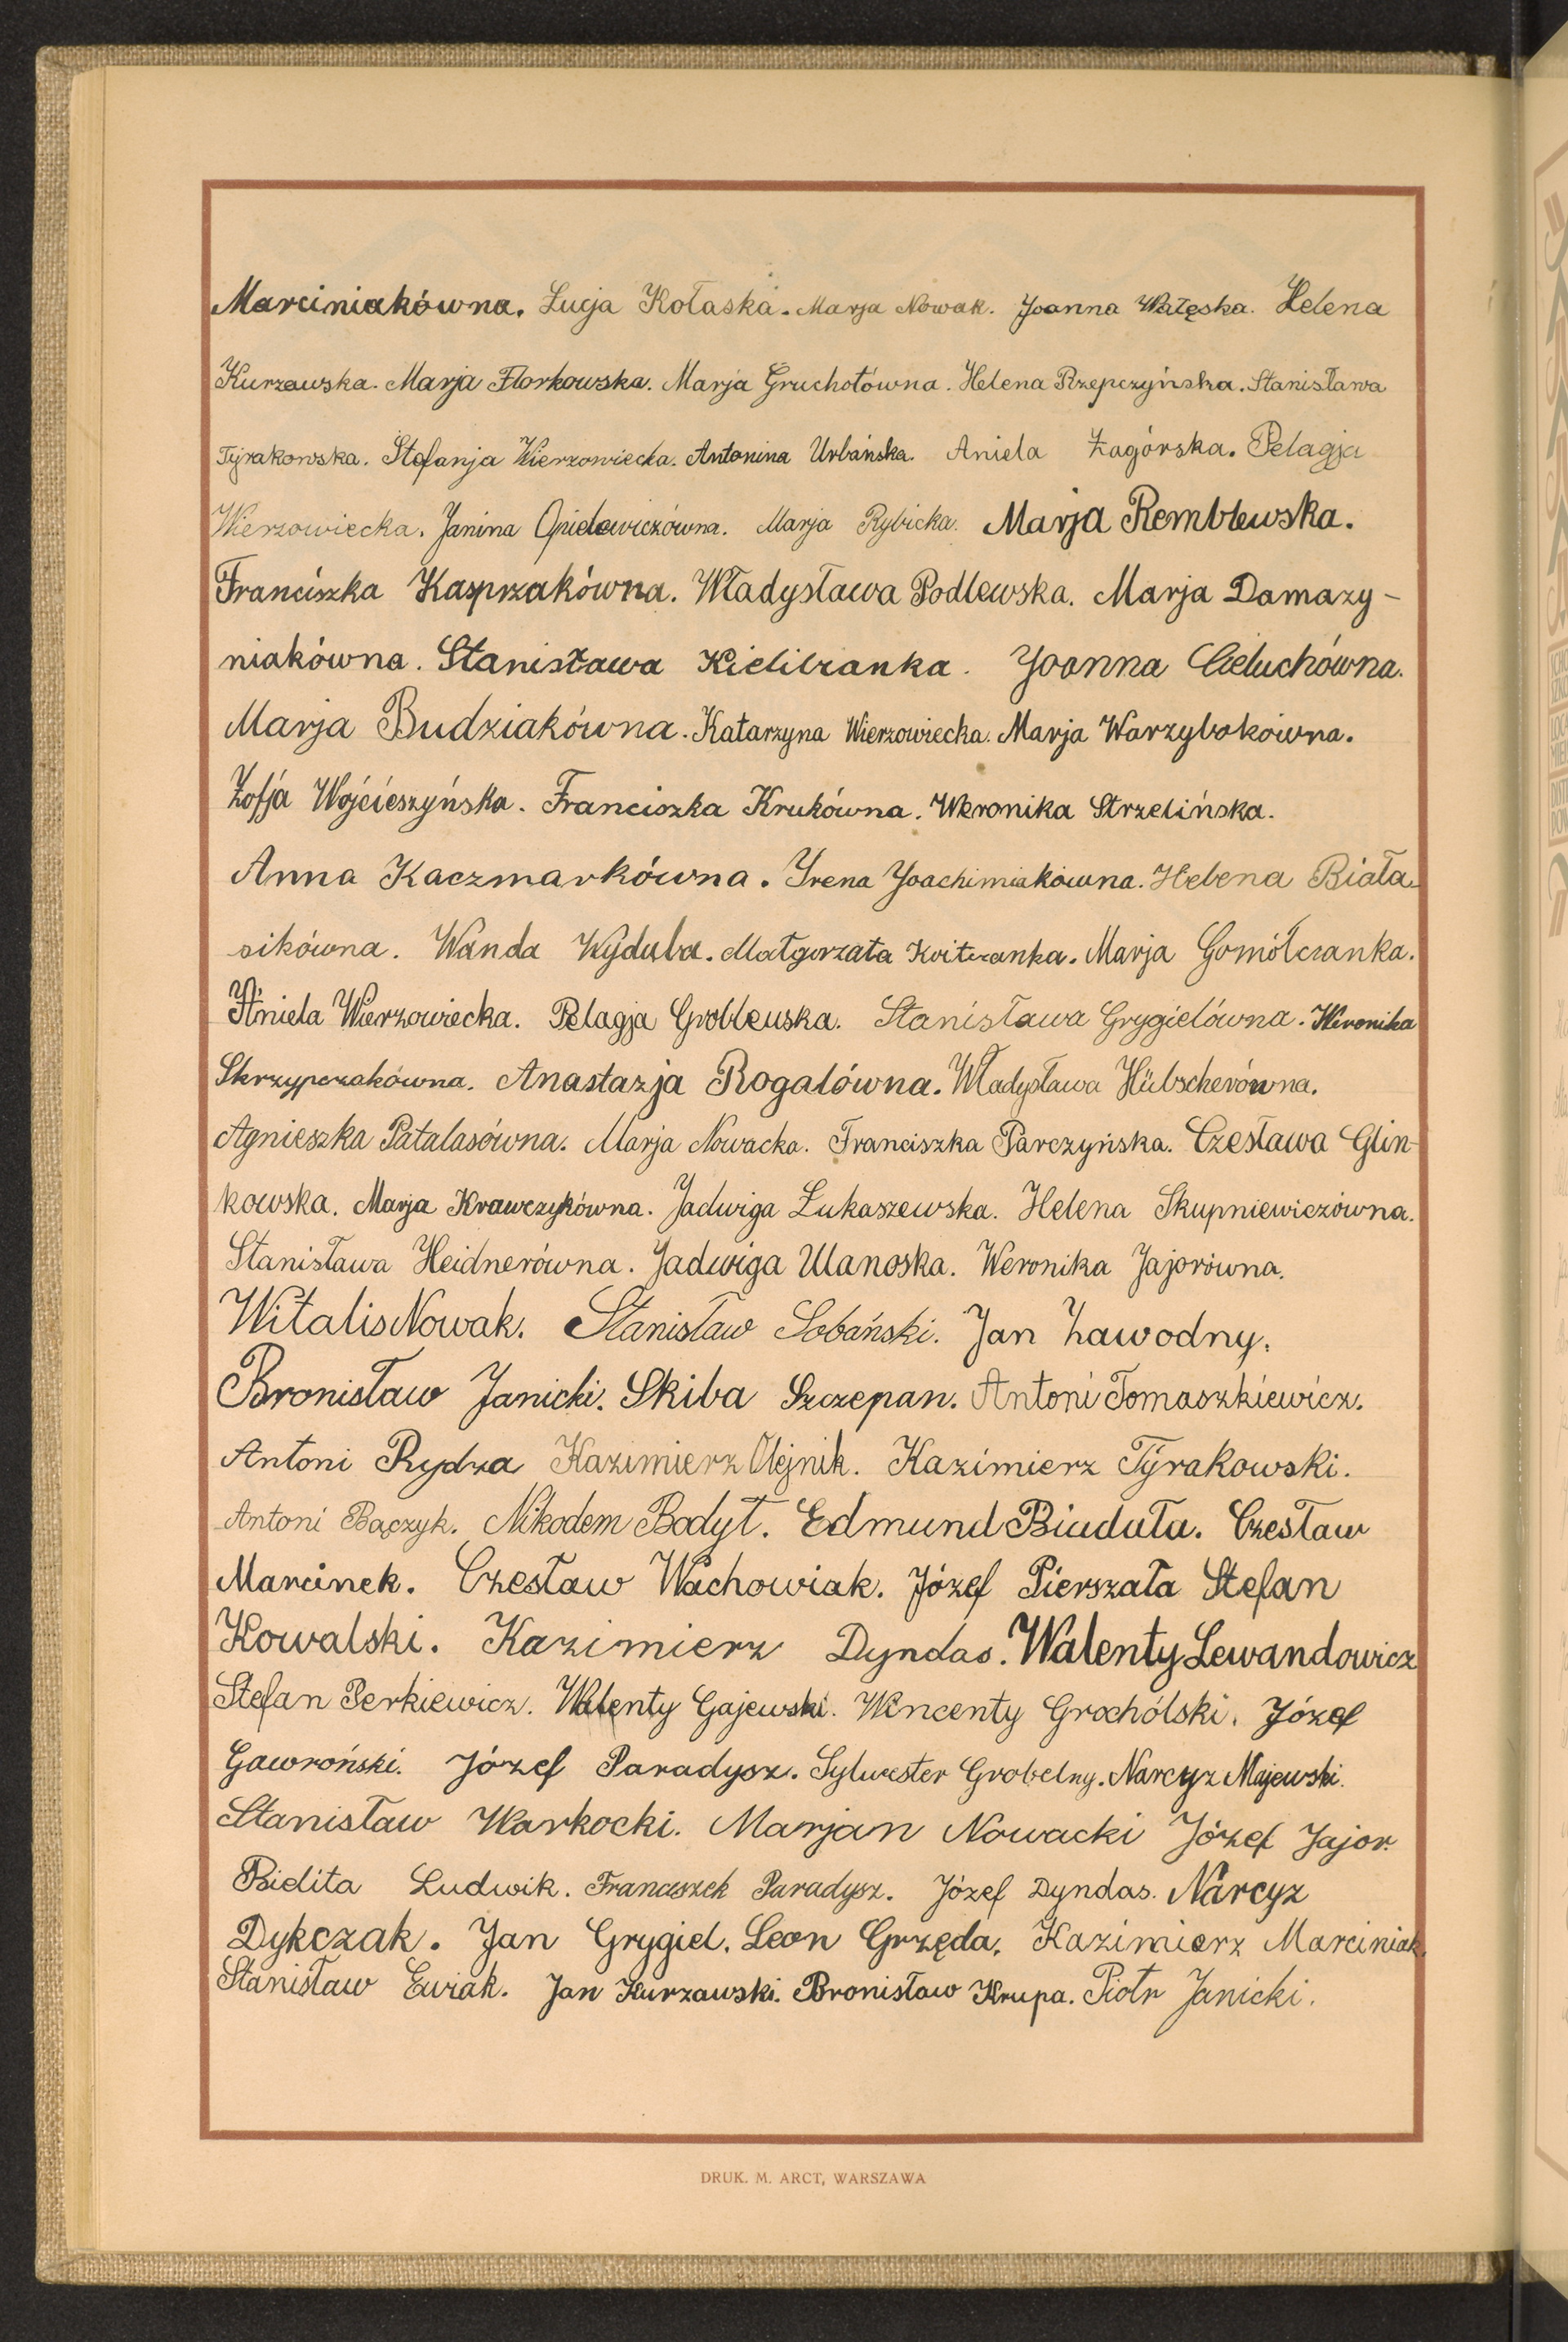 Marciniakówna. Łucja Kołaska. Marja Nowak. Joanna Wałęska. Helena
Kurzawska. Marja Florkowska. Marja Gruchotówna. Helena Rzepczyńska. Stanisława
Tyrakowska. Stefanja Wierzowiecka. Antonina Urbańska. Aniela Zagórska. Pelagja
Wierzowiecka. Janina Opielewiczówna. Marja Rybicka. Marja Remblewska.
Franciszka Kasprzakówna. Władysława Podlewska. Marja Damazy-
niakówna. Stanisława Kielibzanka. Joanna Cieluchówna.
Marja Budziakówna. Katarzyna Wierzowiecka. Marja Warzybokówna.
Zofja Wojcieszyńska. Franciszka Krukówna. Weronika Strzelińska.
Anna Kaczmarkówna. Irena Joachimiakówna. Helena Biała-
sikówna. Wanda Wyduba. Małgorzata Marja Gomółczanka.
Aniela Wierzowiecka. Pelagja Groblewska. Stanisława Grygielówna. Weronika
Skrzypczakówna. Anastazja Rogalówna. Władysława Hübscherówna.
Agnieszka Patalasówna. Marja Nowacka. Franciszka Parczyńska. Czesława Glin-
kowska. Marja Krawczykówna. Jadwiga Łukaszewska. Helena Skupniewiczówna.
Stanisława Heidnerówna. Jadwiga Ulanoska. Weronika Jajorówna.
Witalis Nowak. Stanisław Sobański. Jan Zawodny.
Bronisław Janicki. Skiba Szczepan. Antoni Tomaszkiewicz.
Antoni Rydza Kazimierz Olejnik. Kazimierz Tyrakowski.
Antoni Bączyk. Nikodem Bodył. Edmund Biadała. Czesław
Marcinek. Czesław Wachowiak. Józef Pierszała Stefan
Kowalski. Kazimierz Dyndas. Walenty Lewandowicz
Stefan Perkiewicz. Walenty Gajewski. Wincenty Grochólski. Józef
Gawroński. Józef Paradysz. Sylwester Grobelny. Narcyz Majewski.
Stanisław Warkocki. Marjan Nowacki Józef Jajor.
Bielita Ludwik. Franciszek Paradysz. Józef Dyndas. Narcyz
Dykczak. Jan Grygiel. Leon Grzęda. Kazimierz Marciniak.
Stanisław Ewiak. Jan Kurzawski. Bronisław Krupa. Piotr Janicki.
DRUK. M. ARCT, WARSZAWA